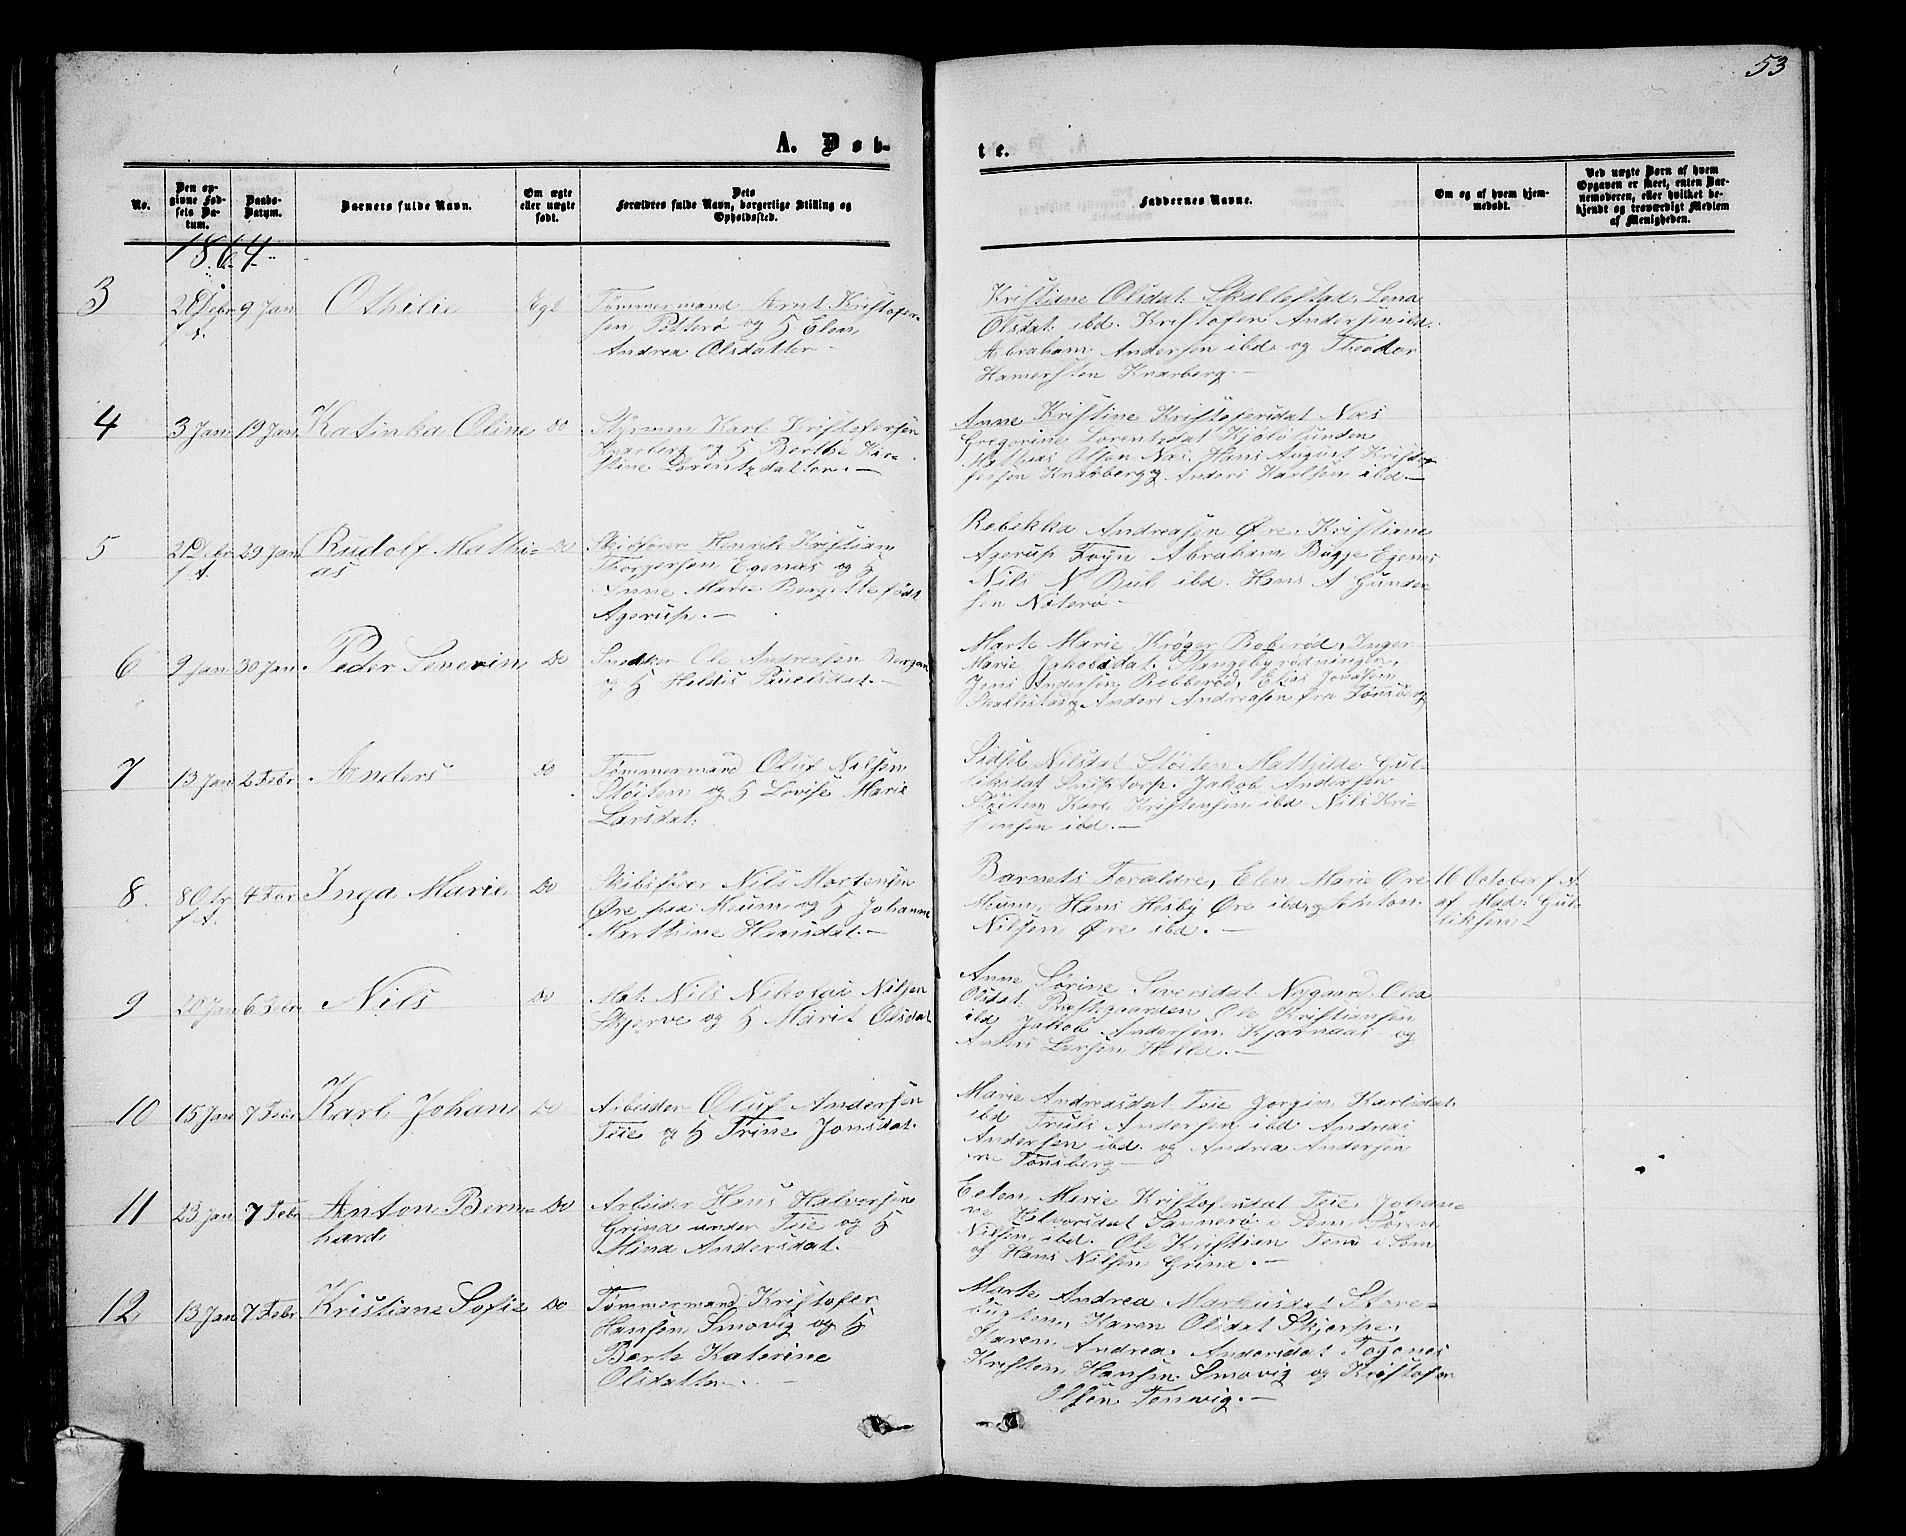 53
A. Døb-
te.
No.
Den op-
givne Fød-
sels Da-
tum.
Daabs-
Datum.
Barnets fulde Navn.
Om ægte
eller uægte
født.
Dets
Forældres fulde Navn, borgerlige Stilling og
Opholdssted.
Faddernes Navne.
Om og af hvem hjem-
medøbt.
Ved uægte Børn af hvem
Opgaven er skeet, enten Bar-
nemoderen, eller hvilket be-
kjendt og troværdigt Medlem
af Menigheden.
1864
3
9 Jan
Othilie
Ægt
Tømmermand Arnt Kristofer-
sen Petterø og H Elen
Andrea Olsdatter
Kristiane Olsdat: Skallestad, Lena
Olsdat. ibd. Kristofer Andersen ibd.
Abraham Andersen ibd. og Theodor
Hamersten Knarberg.—
4
3 Jan
19 Jan
Katinka Oline
Do
Styrman Karl Kristofersen
Knarberg og H Berthe Kir-
stine Lorentzdatter.—
Anne Kristine Kristofersdat Næs
Gregorine Lorentzdat Kjøløsunden
Mathias Olsen Næs, Hans August Kristo-
fersen Knarberg og Anders Karlsen ibd—
5
29 Jan
Rudolf Mathi-
as
Do
Skibsfører Henrik Kristian
Thorgersen Egenæs og H
Anne Marie Bergitte født
Agerup.—
Rebekka Andreasen Øre, Kristiane
Agerup Foyn Abraham Bugge Egenes
Nils N Bul ibd. Hans A Gunder-
sen Nøterø—
6
9 Jan
30 Jan
Peder Severin
Do
Snedker Ole Andreasen Bergan
og H Heldis Paulsdat.—
Marte Marie Krøger Roberød, Inger
Marie Jakobsdat. Stangebyrødningen,
Jens Andersen Robberød, Elias Jonasen
Skallistad og Anders Andreasen fra Tønsberg
7
13 Jan
2 Febr
Anders
Do
Tømmermand Oluf Nilsen
Støiten og H Lovise Marie
Larsdat.
Sidsel Nilsdat Støiten Mathilde Gul-
liksdat Jakob Andersen
Støiten Karl Kristensen ibd. Nils Kri-
stensen ibd.—
8
8 Otr
f. A.
4 Febr
Inga Marie
Do
Skibsfører Nils Mortensen
Øre paa Meum og H Johanne
Marthine Hansdat.—
Barnets Foraldre, Elen Marie Øre
Meum, Hans Hesby Øre ibd, og Anton
Nilsen Øre ibd.—
10 October f. A.
af Mad. Gul-
liksen—
9
20 Jan
6 Febr
Nils
Do
Mat. Nils Nikolai Nilsen
Skjerve og H Marit Olsdat
Anne Sørine Siversdat Nygaard, Olea
Olsdat. Præstegaarden Ole Kristiansen
ibd Jakob Andersen Kjærnaas og
Anders Larsen Hella.—
10
15 Jan
7 Febr
Karl Johan
Do
Arbeider Oluf Andersen
Teie og H Trine Jonsdat.
Marie Andreasdat Teie Jorgine Karlsdat.
ibd Truls Andersen ibd Andreas
Andersen ibd. og Andrea Andersen
Tønsberg—
11
23 Jan
7 Febr
Anton Bern-
hard
Do
Arbeider Hans Halvorsen
Grina under Teie og H
Mina Andersdat.
Eelen Marie Kristofersdat Teie, Johan-
ne Halvorsdat Sannerø i Sem Søren
Nilsen, ibd. Ole Kristian i Sem
og Hans Nilsen Grina.—
12
13 Jan
7 Febr
Kristiane Sofie
Do
Tømmermand Kristofer
Hansen Smovig og H
Berte Katerine
Olsdatter.—
Marte Andrea Markusdat Store-
Karen Olsdat Skjerpe,
Karen Andrea Andersdat Togenes
Kristen Hansen Smovig og Kristofer
Olsen Tenvig.—